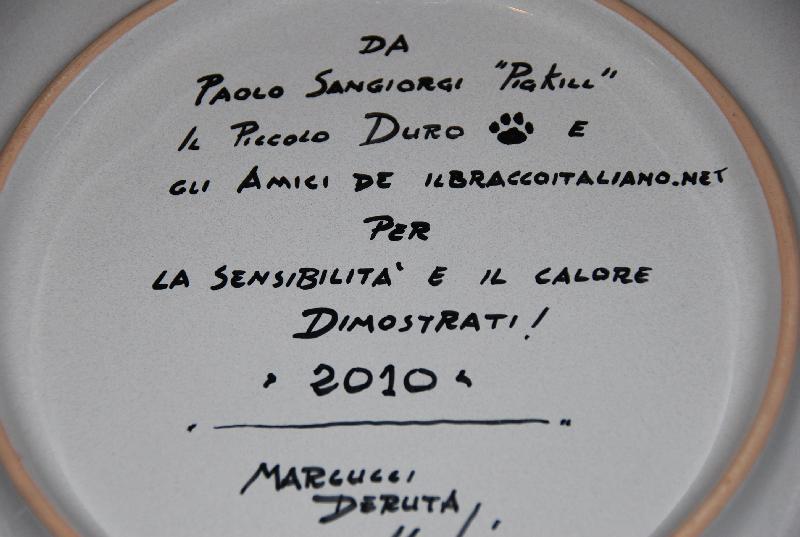 DA
PAOLO SANGIORGI "PIGKILL"
IL PICCOLO DURO E
GLI AMICI DE ILBRACCOITALIANO.NET
PER
LA SENSIBILITA' E IL CALORE
DIMOSTRATI!
2010
MARCUCCI
DERUTA